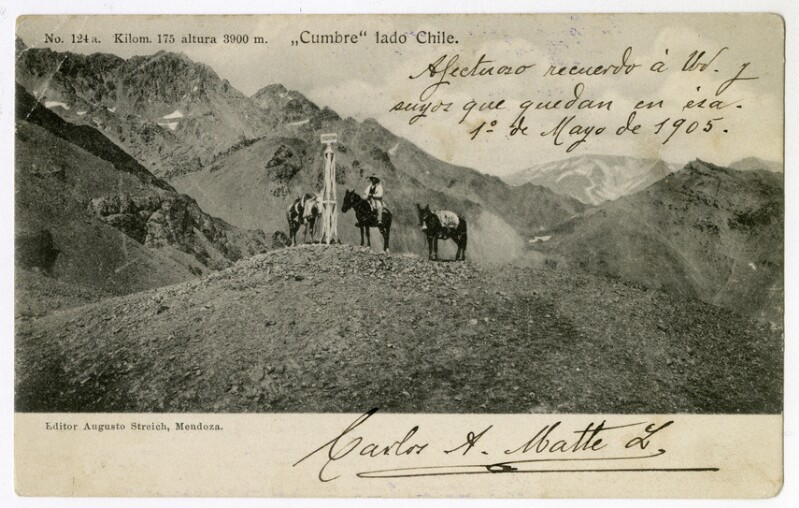 No. 124a. Kilom. 175 altura 3900 m. „Cumbre“ lado Chile.
Afectuoso recuerdo á Ud. y
suyos que quedan en ésa.
1º de Mayo de 1905.
Editor Augusto Streich, Mendoza.
Carlos A. Matte L.